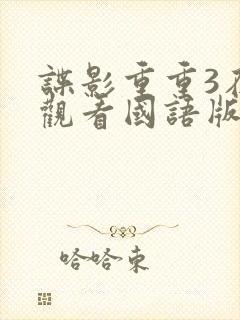 諜影重重3
觀看國語版
哈哈東